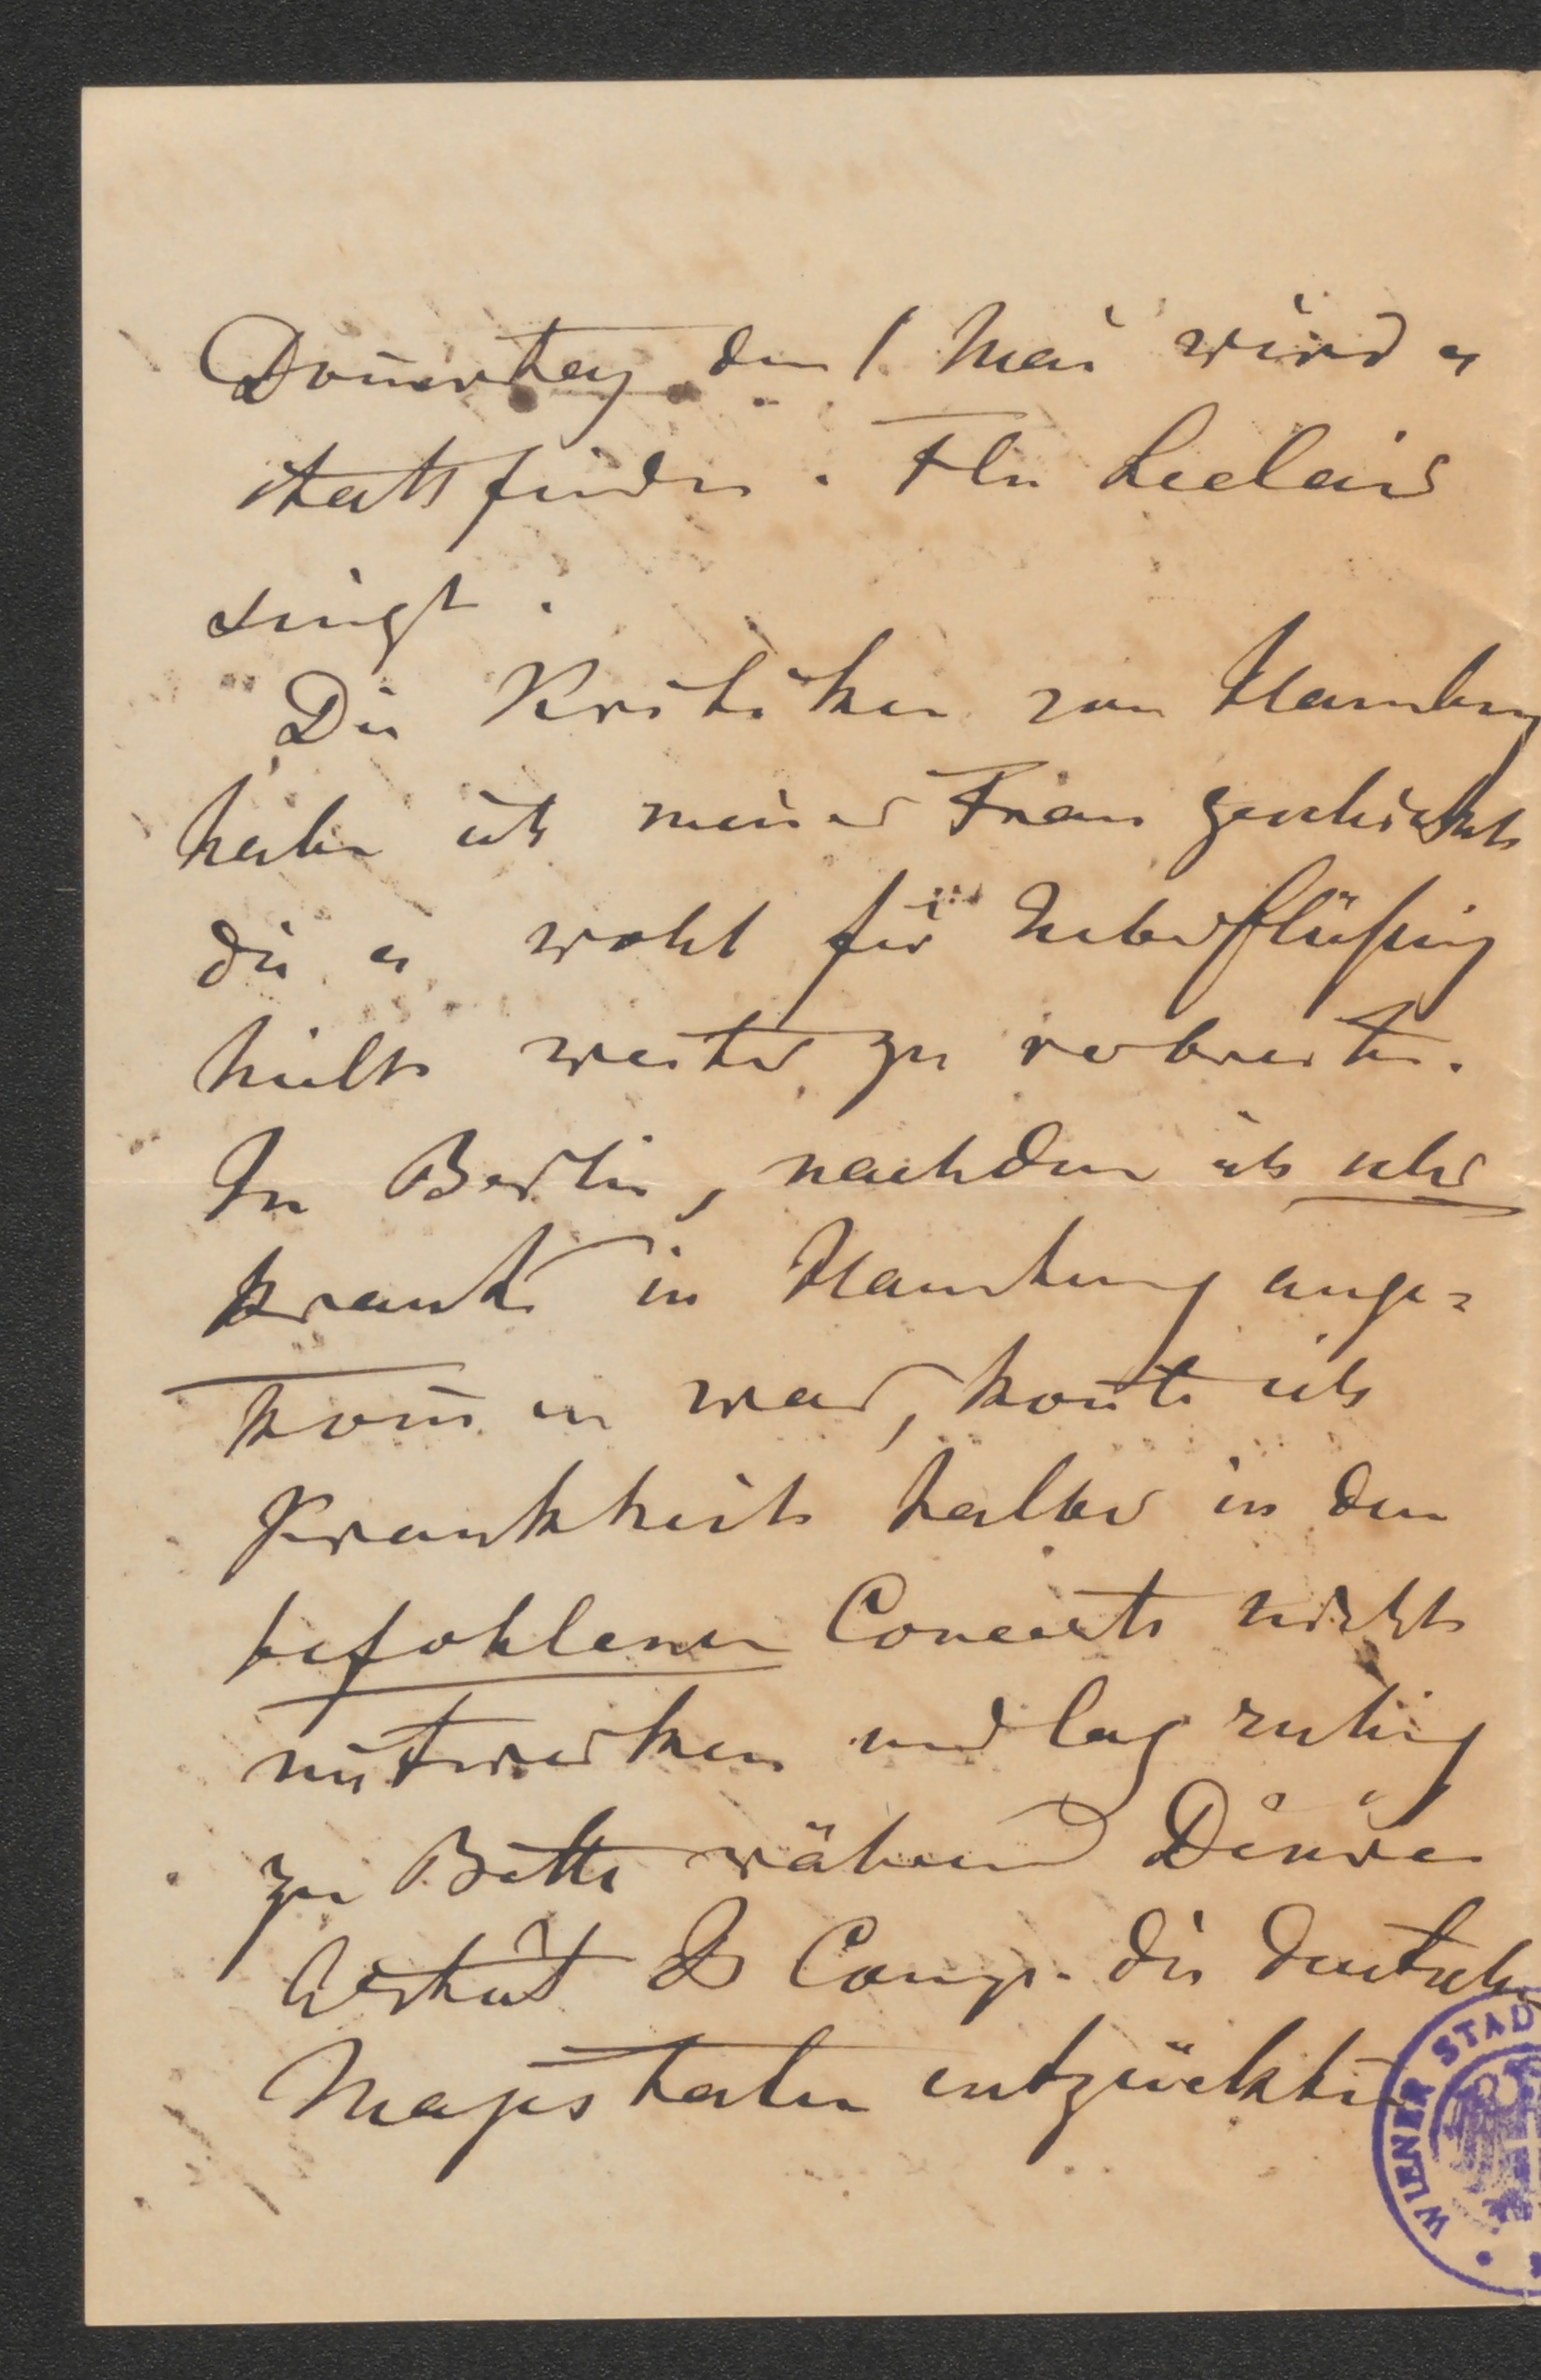 Donnerstag den 1. Mai wird es
stattfinden. Frln Leclair
singt.
Die Kritiken von Hamburg
habe ich meiner Frau geschickt
die es wohl für Ueberflüßig
hielt weiter zu verbreiten.
In Berlin, nachdem ich sehr
krank in Hamburg ange-
kom̄en war, kon̄te ich
Krankheits halber in dem
befohlenen Concerte nicht
mitwirken und lag ruhig
zu Bette während Désirée
Artôt & Comp. die deutschen
Majestaten entzückten
WIENER STAD